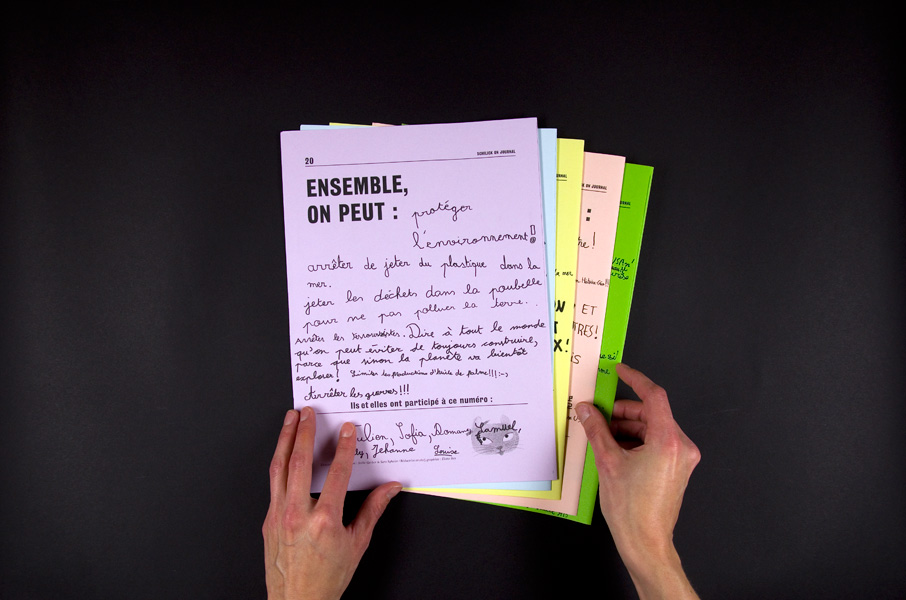 20
SCHLICK ON JOURNAL
ENSEMBLE,
ON PEUT : protéger
l'environnement!
arrêter de jeter du plastique dans la
mer.
jeter les déchets dans la poubelle
pour ne pas polluer la terre.
Arrêter les terroristes. Dire à tout le monde
qu'on peut éviter de toujours construire,
parce que sinon la planète va bientôt
exploser! Limiter les productions d'huile de palme!!! :-)
Arrêter les guerres!!!
Ils et elles ont participé à ce numéro :
Sofia, Samuel,
Jehanne Louise
ON JOURNAL
tre!
mer
ET
TRES!
X!